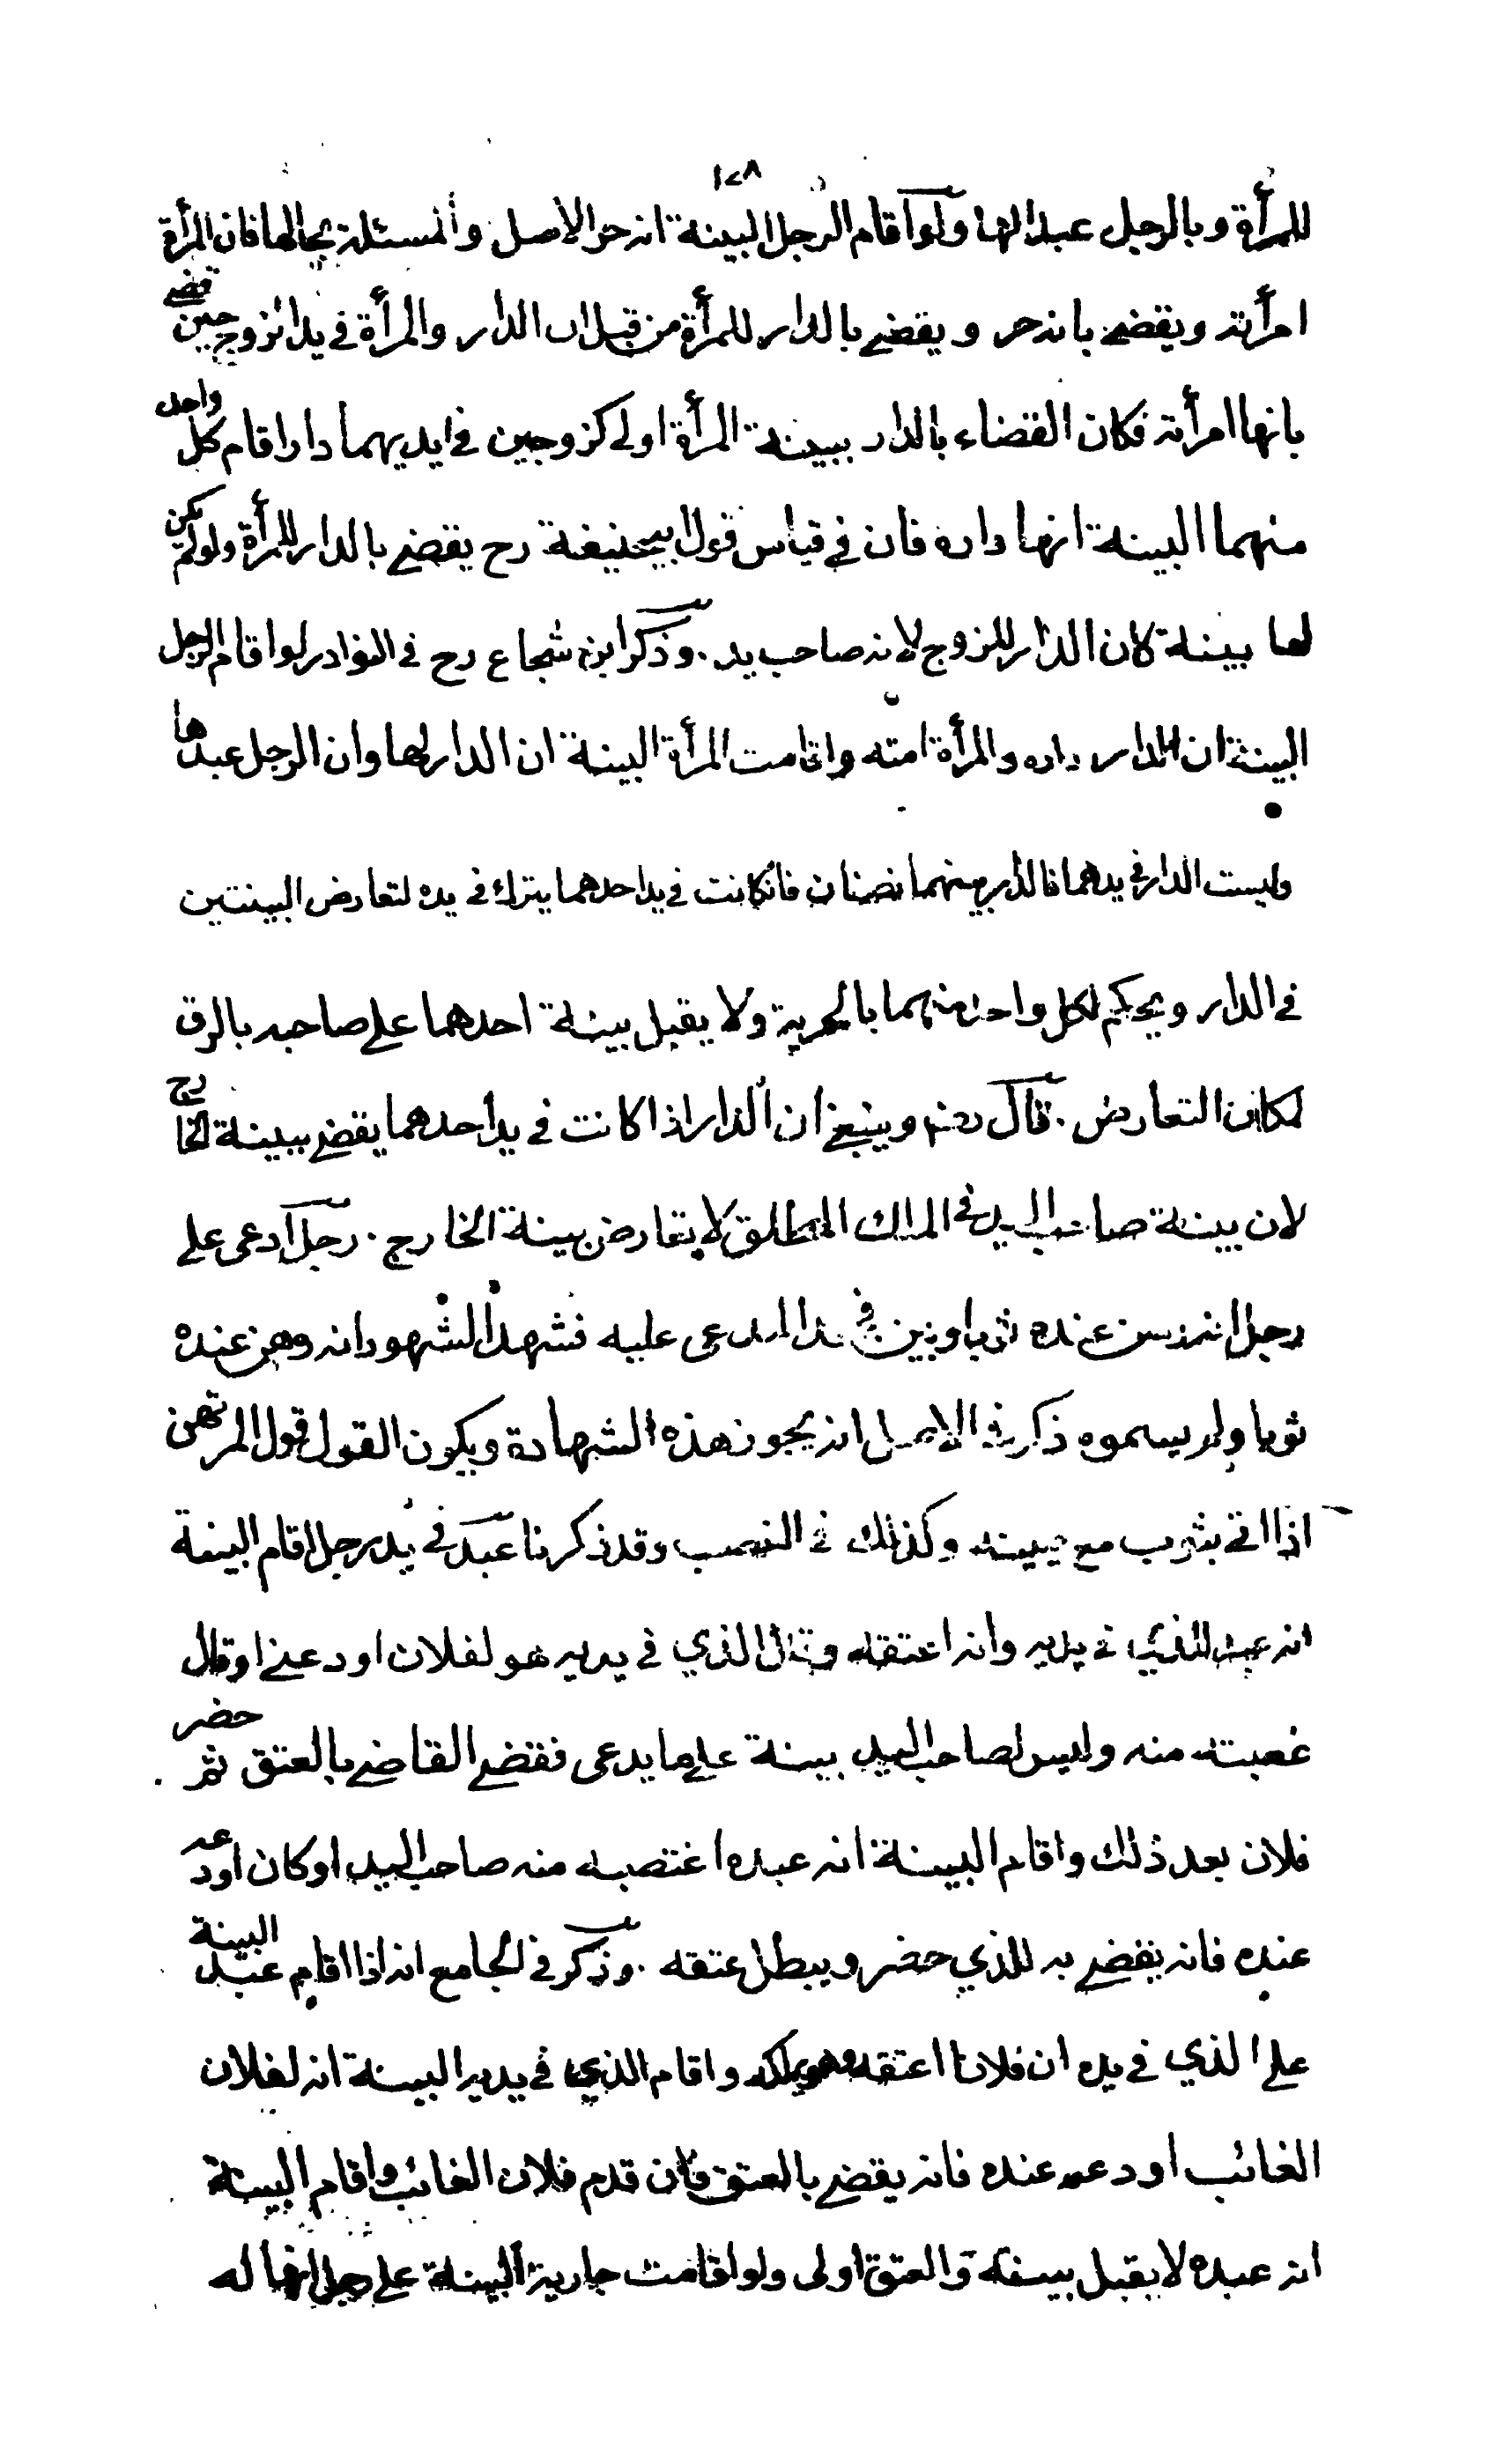 ١٢٨
للمرأة وبالرجل عبدا لها ولو اقام الرجل البينة انه حر الاصل والمسئلة بحالها فان المرأة
امرأته ويقضى بانه حر ويقضى بالدار للمرأة من قبل ان الدار والمرأة في يد الزوج حين قضى
بانها امرأته فكان القضاء بالدار ببينة المرأة اولى كزوجين في ايديهما دار اقام كل واحد
منهما البينة انها داره فان في قياس قول ابيحنيفة رح يقضى بالدار للمرأة ولو لم يكن
لها بينة كان الدار للزوج لانه صاحب يد . وذكر ابن شجاع رح في النوادر لو اقام الرجل
البينة ان الدار داره والمرأة امته واقامت المرأة البينة ان الدار لها وان الرجل عبدها
وليست الدار في يدهما فالدار بينهما نصفان فانكانت في يد احدهما يترك في يده لتعارض البينتين
في الدار ويحكم لكل واحد منهما بالحرية ولا يقبل بينة احدهما على صاحبه بالرق
لمكان التعارض . قال رضـ وينبغي ان الدار اذا كانت في يد احدهما يقضى ببينة الخارج
لان بينة صاحب اليد في الملك المطلق لا يعارض بينة الخارج . رجل ادعى على
رجل انه رهن عنده ثوبا وبين في يد المدعى عليه فشهد الشهود انه رهن عنده
ثوبا ولم يسموه ذكر في الاصل انه يجوز هذه الشهادة ويكون القول قول المرتهن
اذا اتى بثوب مع يمينه وكذلك في الغصب وقد ذكرنا عبد في يد رجل اقام البينة
انه عبد الذي في يديه وانه اعتقه وقال الذي في يديه هو لفلان اودعني او قال
غصبته منه وليس لصاحب اليد بينة على ما يدعى فقضى القاضي بالعتق ثم حضر
فلان بعد ذلك واقام البينة انه عبده اغتصبه منه صاحب اليد او كان اودعه
عنده فانه يقضى به للذي حضر ويبطل عتقه . وذكر في الجامع انه اذا اقام عبد البينة
على الذي في يده ان فلانا اعتقه وهو يملكه واقام الذي في يديه البينة انه لفلان
الغائب اودعه عنده فانه يقضى بالعتق فان قدم فلان الغائب واقام البينة
انه عبده لا يقبل بينته والعتق اولى ولو اقامت جارية البينة على رجل انها له